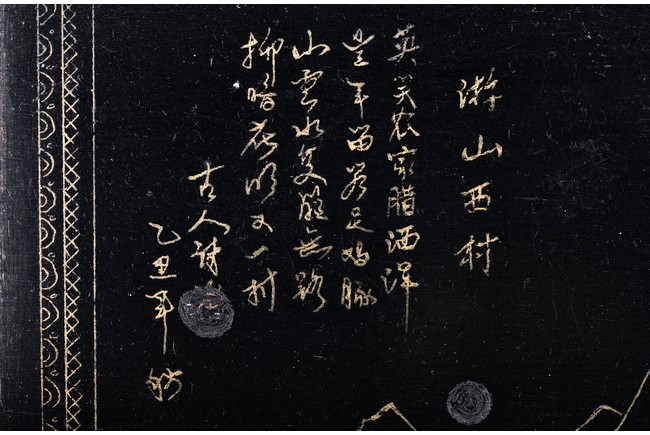 游山西村
莫笑农家腊酒浑
豊年留客足鸡豚
山重水复疑無路
柳暗花明又一村
古人诗
乙丑年